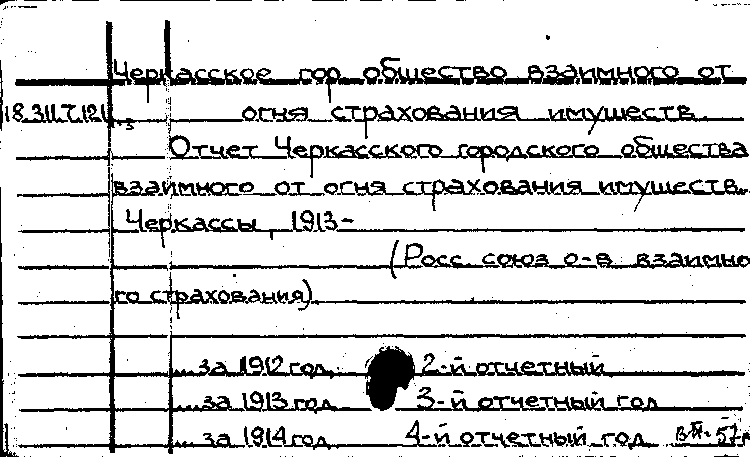 Черкасское гор. общество взаимного от
огня страхования имуществ.
Отчет Черкасского городского общества
взаимного от огня страхования имуществ.
Черкассы, 1913-
(Росс. союз о-в взаимно
го страхования).
... за 1912 год, 2-й отчетный
... за 1913 год 3-й отчетный год
... за 1914 год 4-й отчетный год